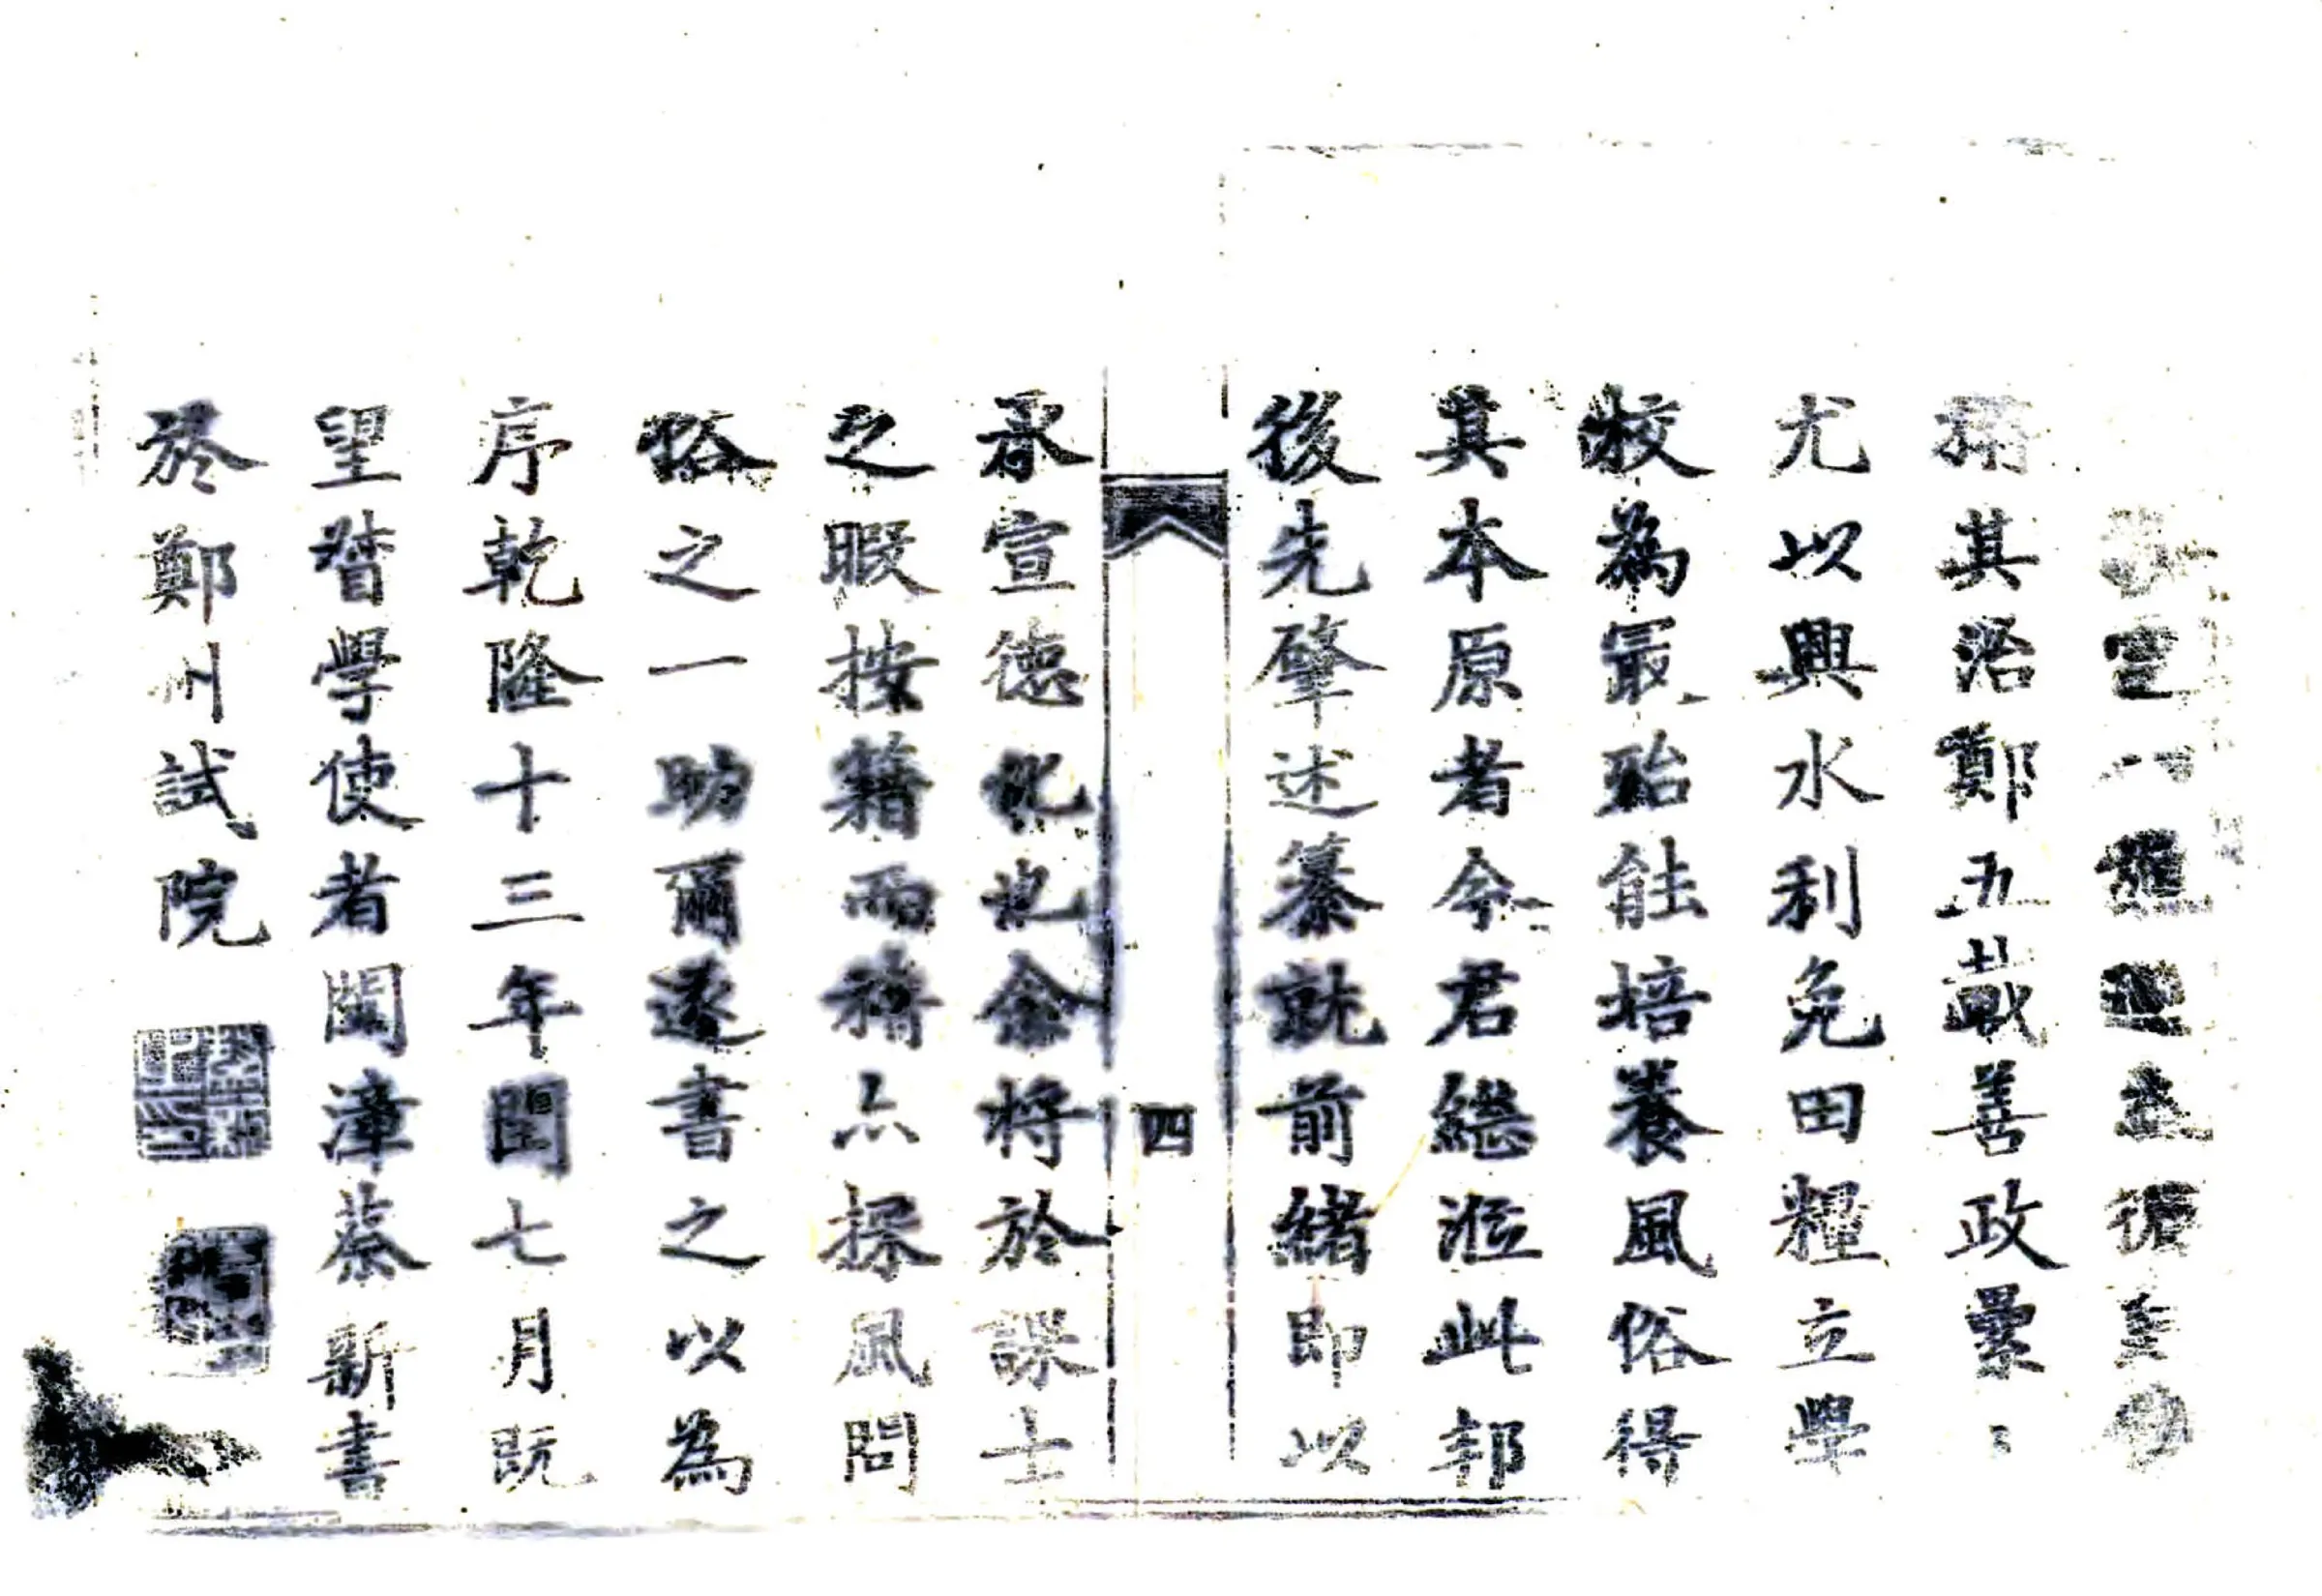 其治鄭五載善政纍〻
尤以興水利免田糧立學
校為冣殆能培養風俗得
其本原者今君緫涖此邦
後先肇述纂就前緒即以
四
承宣德化也余將於課士
之暇按籍而稽亦採風問
俗之一助爾遂書之以為
序乾隆十三年閏七月既
望督學使者閩漳蔡新書
於鄭州試院